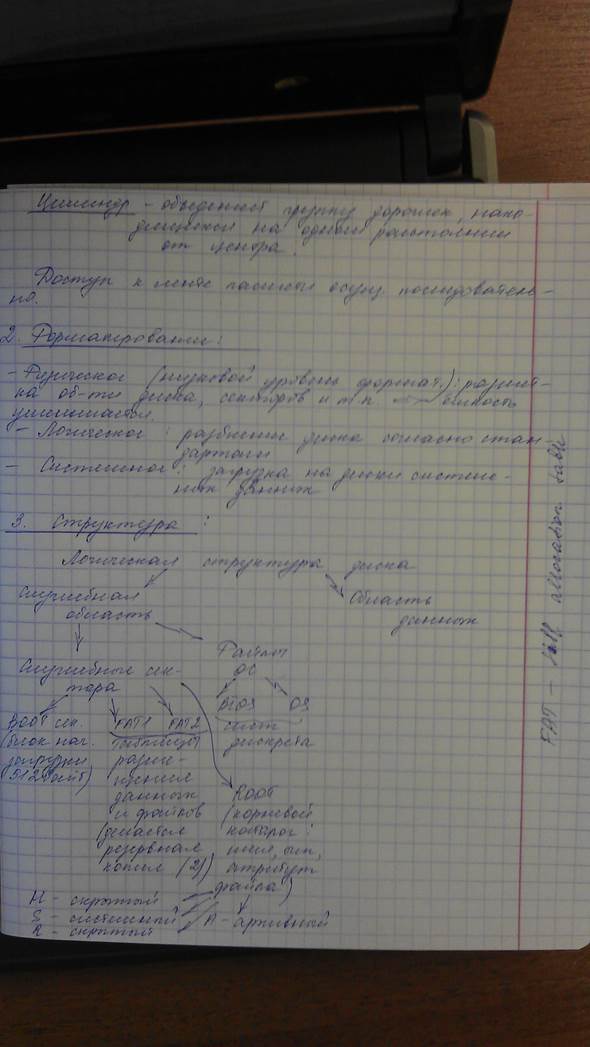 Цилиндр - объединяет группу дорожек, нахо-
дящихся на одном расстоянии
от центра.
Доступ к ленте памяти осущ. последователь-
но.
2. Форматирование:
- Физическое (низковой уровень формат.): размет-
ка об-ти диска, секторов и т.п. → ёмкость
уменьшается.
- Логическое: разбиение диска согласно стан-
дартам
- Системное: загрузка на диски систем-
ных данных
3. Структура:
Логическая структура диска
Служебная
область
Область
данных
Служебные сек-
тора
Файлы
ОС
BIOS OS
сист. дискета
BOOT сек.
(блок нач.
загрузки
512 байт)
FAT1 FAT2
таблицы
разме-
щения
данных
и файлов
(делается
резервная
копия (2))
ROOT
(корневой
каталог:
имя,
атрибут
файла)
H - скрытый
S - системный
R - скрытый
A - архивный
FAT - allocation table